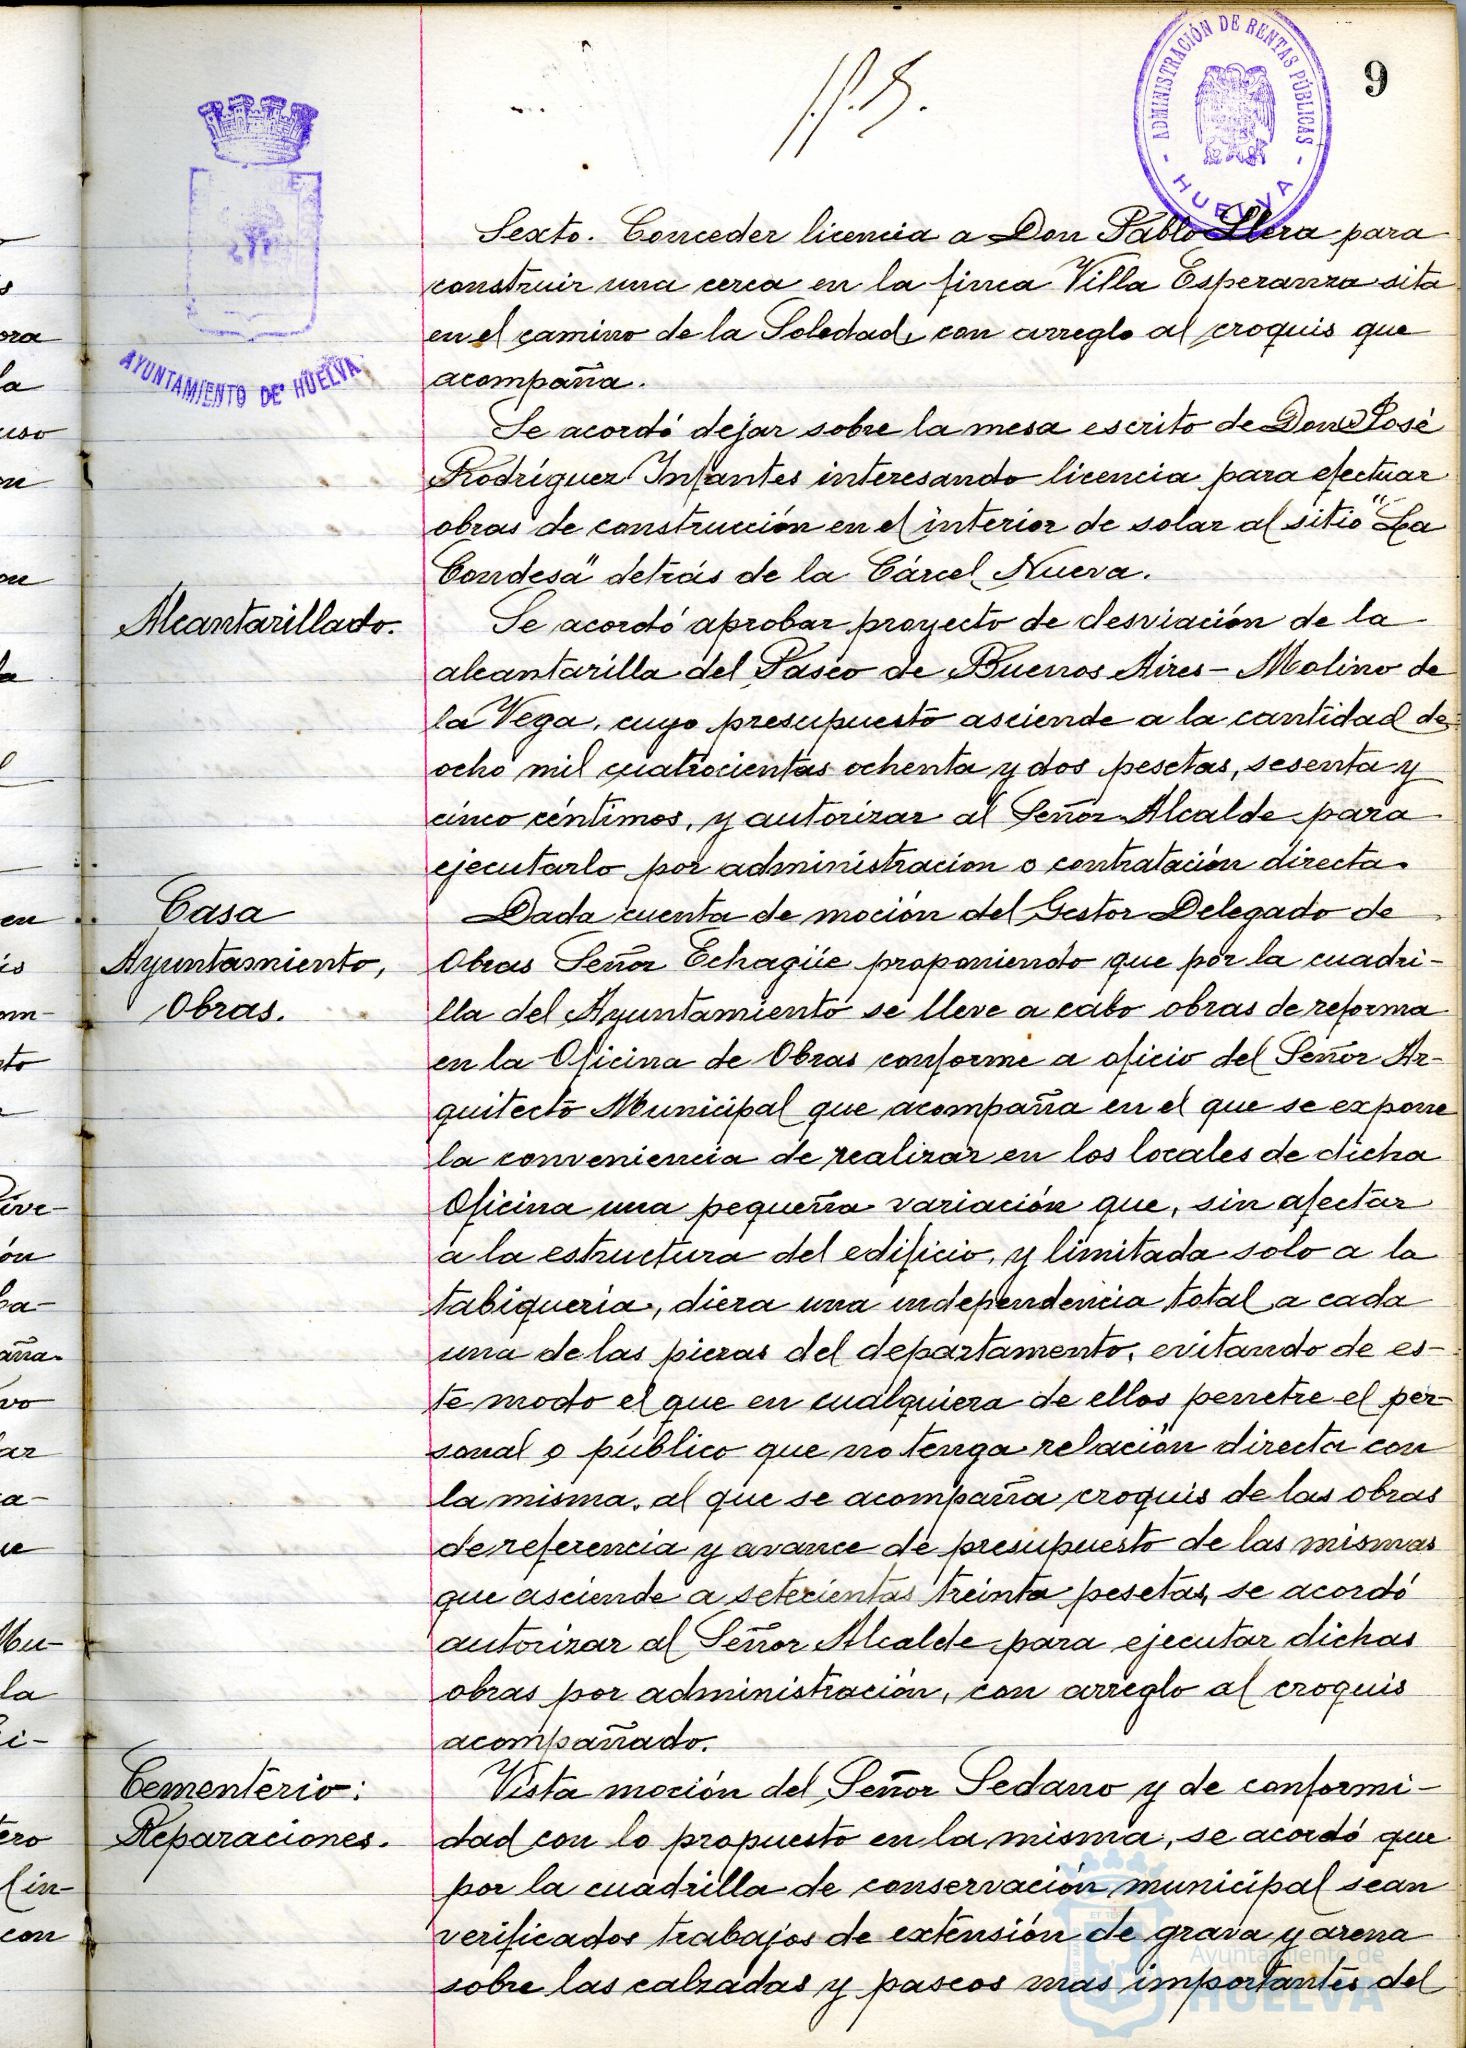 9
ADMINISTRACIÓN DE RENTAS PÚBLICAS
- HUELVA -
AYUNTAMIENTO DE HUELVA
Sexto. Conceder licencia a Don Pablo Llera para
construir una cerca en la finca Villa Esperanza sita
en el camino de la Soledad, con arreglo al croquis que
acompaña.
Se acordó dejar sobre la mesa escrito de Don José
Rodríguez Infantes interesando licencia para efectuar
obras de construcción en el interior de solar al sitio "La
Condesa" detrás de la Cárcel Nueva.
Alcantarillado.
Se acordó aprobar proyecto de desviación de la
alcantarilla del Paseo de Buenos Aires - Molino de
la Vega, cuyo presupuesto asciende a la cantidad de
ocho mil cuatrocientas ochenta y dos pesetas, sesenta y
cinco céntimos, y autorizar al Señor Alcalde para
ejecutarlo por administracion o contratación directa.
Casa
Ayuntamiento,
Obras.
Dada cuenta de moción del Gestor Delegado de
Obras Señor Echagüe proponiendo que por la cuadri-
lla del Ayuntamiento se lleve a cabo obras de reforma
en la Oficina de Obras conforme a oficio del Señor Ar-
quitecto Municipal que acompaña en el que se expone
la conveniencia de realizar en los locales de dicha
Oficina una pequeña variación que, sin afectar
a la estructura del edificio, y limitada solo a la
tabiqueria, diera una independencia total a cada
una de las piezas del departamento, evitando de es-
te modo el que en cualquiera de ellos penetre el per-
sonal o público que no tenga relación directa con
la misma, al que se acompaña croquis de las obras
de referencia y avance de presupuesto de las mismas
que asciende a setecientas treinta pesetas, se acordó
autorizar al Señor Alcalde para ejecutar dichas
obras por administración, con arreglo al croquis
acompañado.
Cementerio:
Reparaciones.
Vista moción del Señor Sedano y de conformi-
dad con lo propuesto en la misma, se acordó que
por la cuadrilla de conservación municipal sean
verificados trabajos de extensión de grava y arena
sobre las calzadas y paseos mas importantes del
Ayuntamiento de
HUELVA